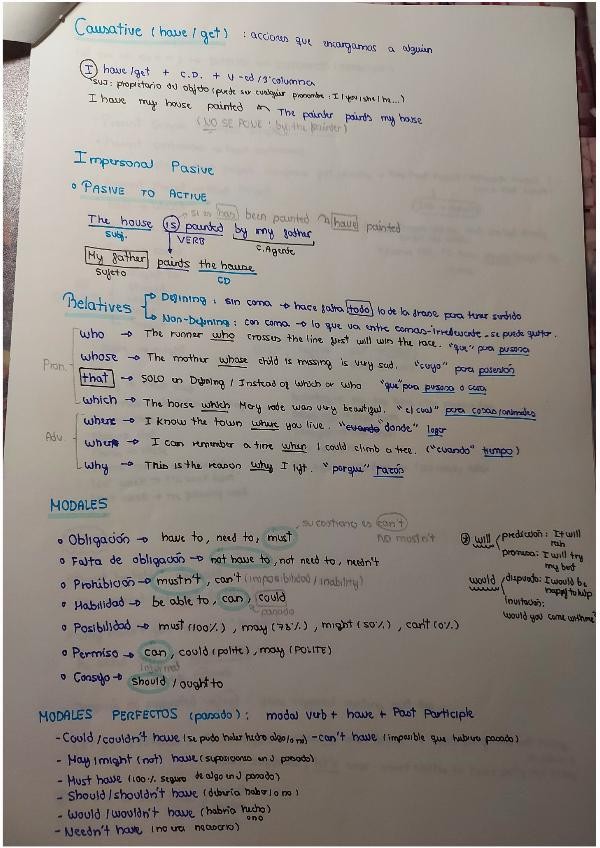 Causative (have / get) : acciones que encargamos a alguien
I have/get + C.D. + V-ed/3ª columna
suj: propietario du objeto (puede ser cualquier pronombre: I / you / she / he...)
I have my house painted The painter paints my house
(NO SE PONE: by the painter)
Impersonal Pasive
PASIVE TO ACTIVE
si es has been painted have painted
The house is painted by my father
Subj. VERB C. Agente
My father paints the house
Sujeto CD
Relatives
Defining: sin coma → hace falta todo lo de la frase para tener sentido
Non-Defining: con coma → lo que va entre comas-irrelevante-se puede quitar.
Pron.
who → The runner who crosses the line first will win the race. "que" para persona
whose → The mother whose child is missing is very sad. "cuyo" para posesión
that → SOLO en Defining / Instead of which or who "que" para persona o cosa
which → The horse which Mery rode was very beautiful. "el cual" para cosas/animales
Adv.
where → I know the town where you live. "donde" lugar
when → I can remember a time when I could climb a tree. ("cuando" tiempo)
why → This is the reason why I left. "porque" razón
MODALES
su contrario es can't
NO mustn't
Obligación → have to, need to, must
Falta de obligación → not have to, not need to, needn't
Prohibición → mustn't, can't (imposibilidad / inability)
Habilidad → be able to, can, could
pasado
Posibilidad → must (100%), may (75%), might (50%), can't (0%)
Permiso → can, could (polite), may (POLITE)
informal
Consejo → should / ought to
will predicción: It will rain
promesa: I will try my best
would disputado: I would be happy to help
invitación:
would you come with me?
MODALES PERFECTOS (pasado): modal verb + have + Past Participle
- Could / couldn't have (se pudo haber hecho algo / o no) - can't have (imposible que hubiera pasado)
- May / might (not) have (suposiciones en pasado)
- Must have (100% seguro de algo en pasado)
- Should / shouldn't have (debería haber / o no)
- Would / wouldn't have (habría hecho o no)
- Needn't have (no era necesario)